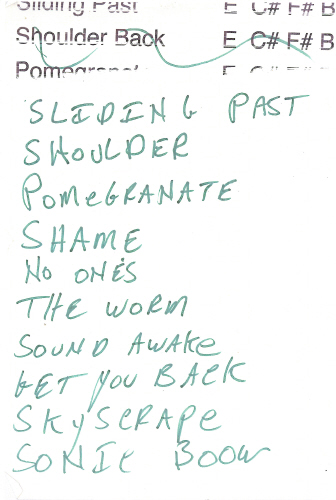 Sliding Past E C# F# B
Shoulder Back E C# F# B
Pomegranate E C# F# B
SLIDING PAST
SHOULDER
POMEGRANATE
SHAME
NO ONES
THE WORM
SOUND AWAKE
GET YOU BACK
SKYSCRAPE
SONIC BOOM